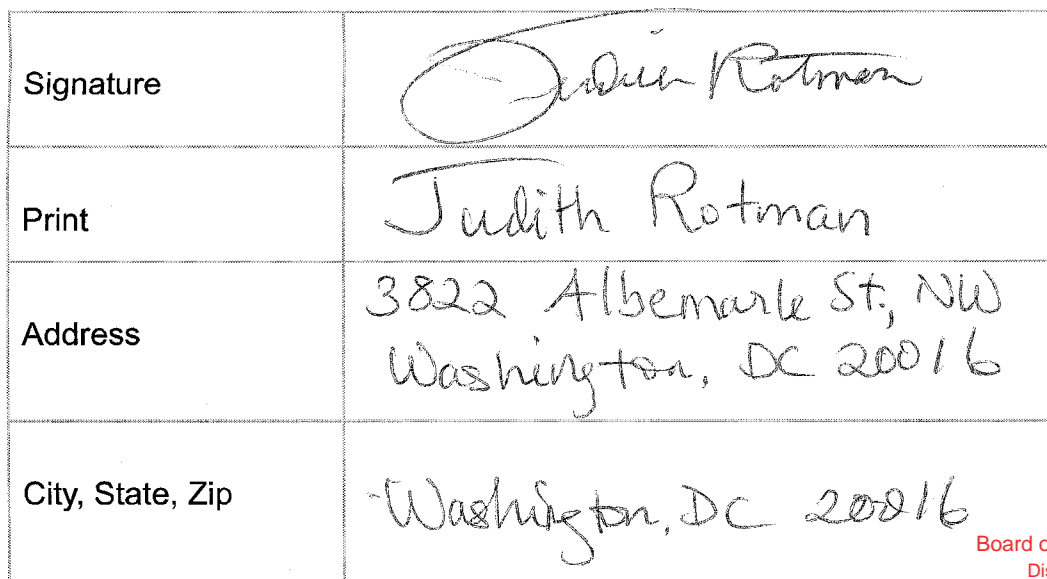 Signature
Judith Rotman
Print
Judith Rotman
Address
3822 Albemarle St, NW
Washington, DC 20016
City, State, Zip
Washington, DC 20016
Board o
Dis